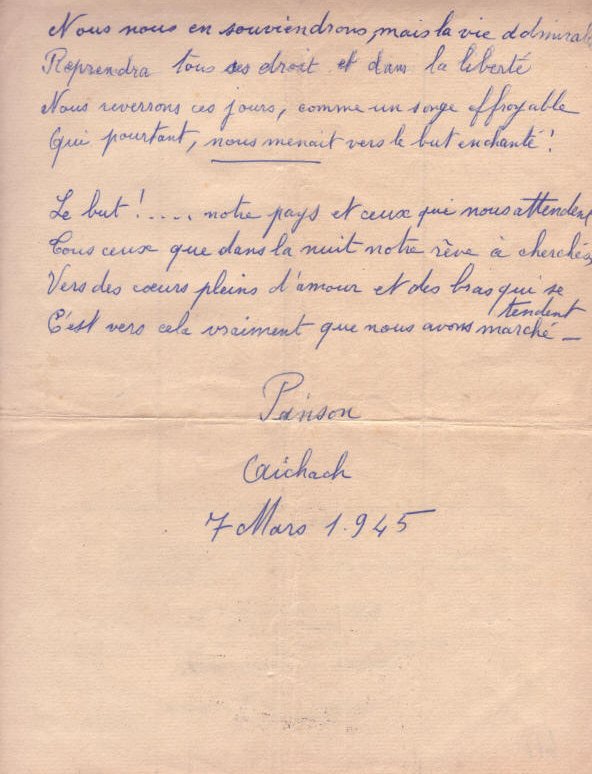 Nous nous en souviendrons, mais la vie admirabl
Reprendra tous ses droit et dans la liberté
Nous reverrons ces jours, comme un songe effroyable
Qui pourtant, nous menait vers le but enchanté !
Le but !.... notre pays et ceux qui nous attendent
Tous ceux que dans la nuit notre rêve à cherchés,
Vers des cœurs pleins d'amour et des bras qui se
tendent
C'est vers cela vraiment que nous avons marché —
Aichach
7 Mars 1.945